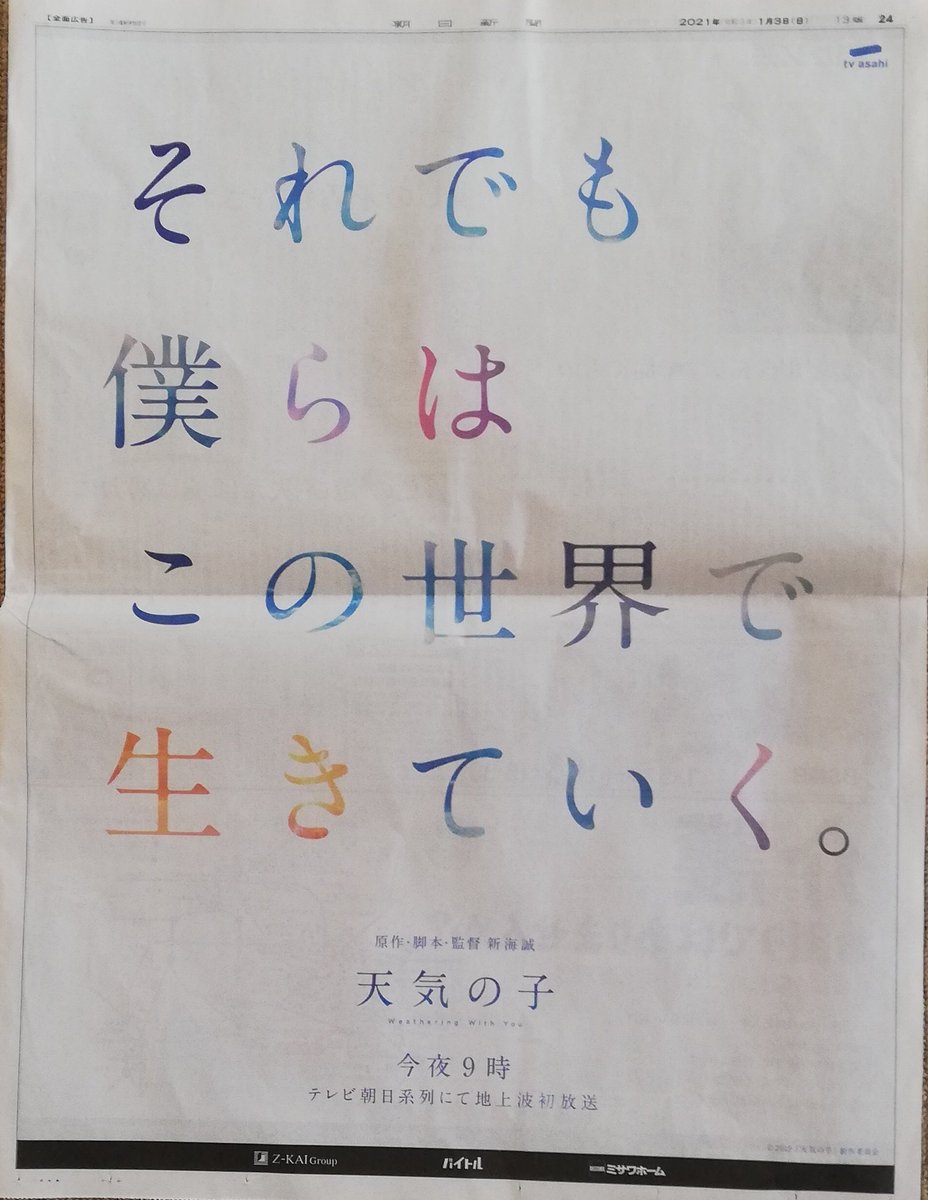 【全面広告】 朝日新聞 2021年 1月3日(日) 13版 24
tv asahi
それでも
僕らは
この世界で
生きていく。
原作・脚本・監督 新海誠
天気の子
Weathering With You
今夜9時
テレビ朝日系列にて地上波初放送
Z-KAI Group バイトル ミサワホーム